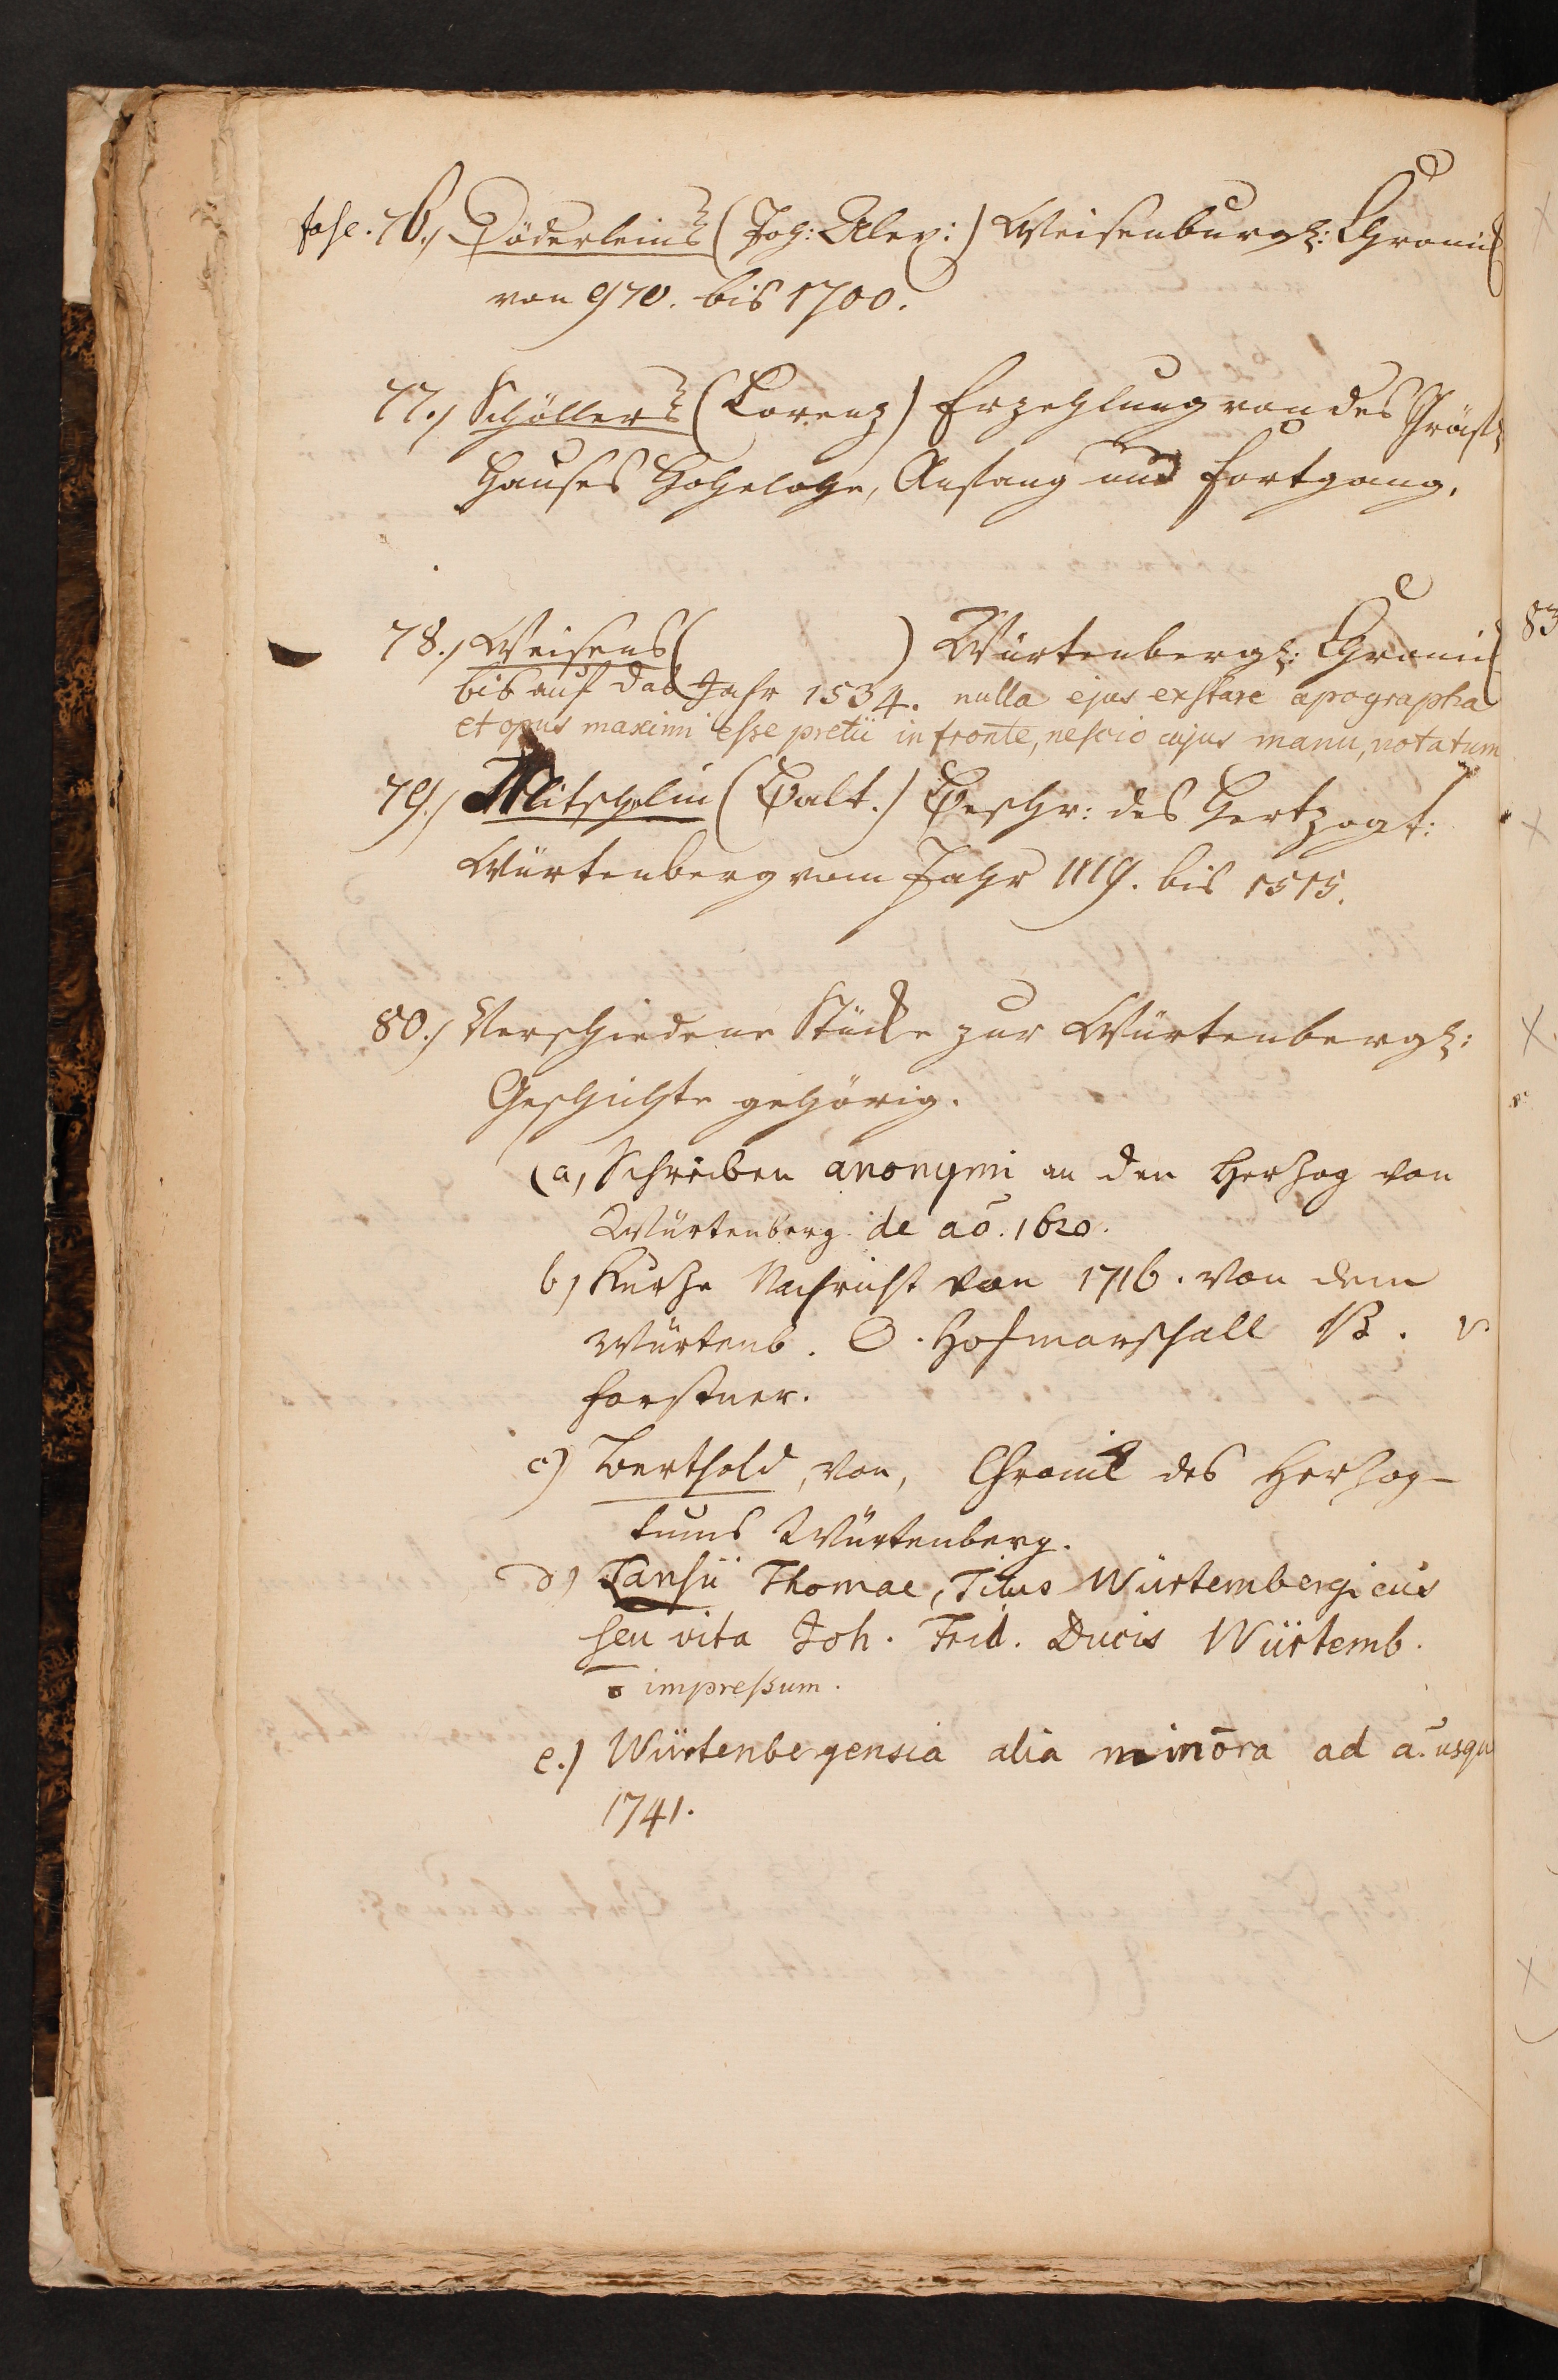 fasc. 76.) Döderleins (Joh: Alex:) Weisenburgl: Chronick
von 970. bis 1700.
77.) Schöllers (Lorenz) Erzehlung von des Gräfl:
Hauses Hohelohe, Anfang und fortgang.
78.) Weisens ( ) Würtenbergl: Chronick
bis auf das Jahr 1534. nulla ejus exstare apographa
et opus maximi esse pretii in fronte, nescio cujus manu, notatum
79.) Mitschelin (Balt.) Beschr: des Hertzogt:
Würtenberg vom Jahr 1119. bis 1515.
80.) Verschiedene Stücke zur Würtenbergl:
Geschichte gehörig.
(a, Schreiben anonymi an den Herzog von
Würtenberg de aō. 1620.
b) Kurze Nachricht von 1716. von dem
Würtenb. O. Hofmarschall B. v.
Forstner.
c) Berthold, von, Chronik des Herzog-
tums Würtenberg.
d) Lansii Thomae, Titus Würtembergicus
seu vita Joh. Frid. Ducis Würtemb.
impressum.
e.) Würtenbergensia alia minora ad a. usqu
1741.
83